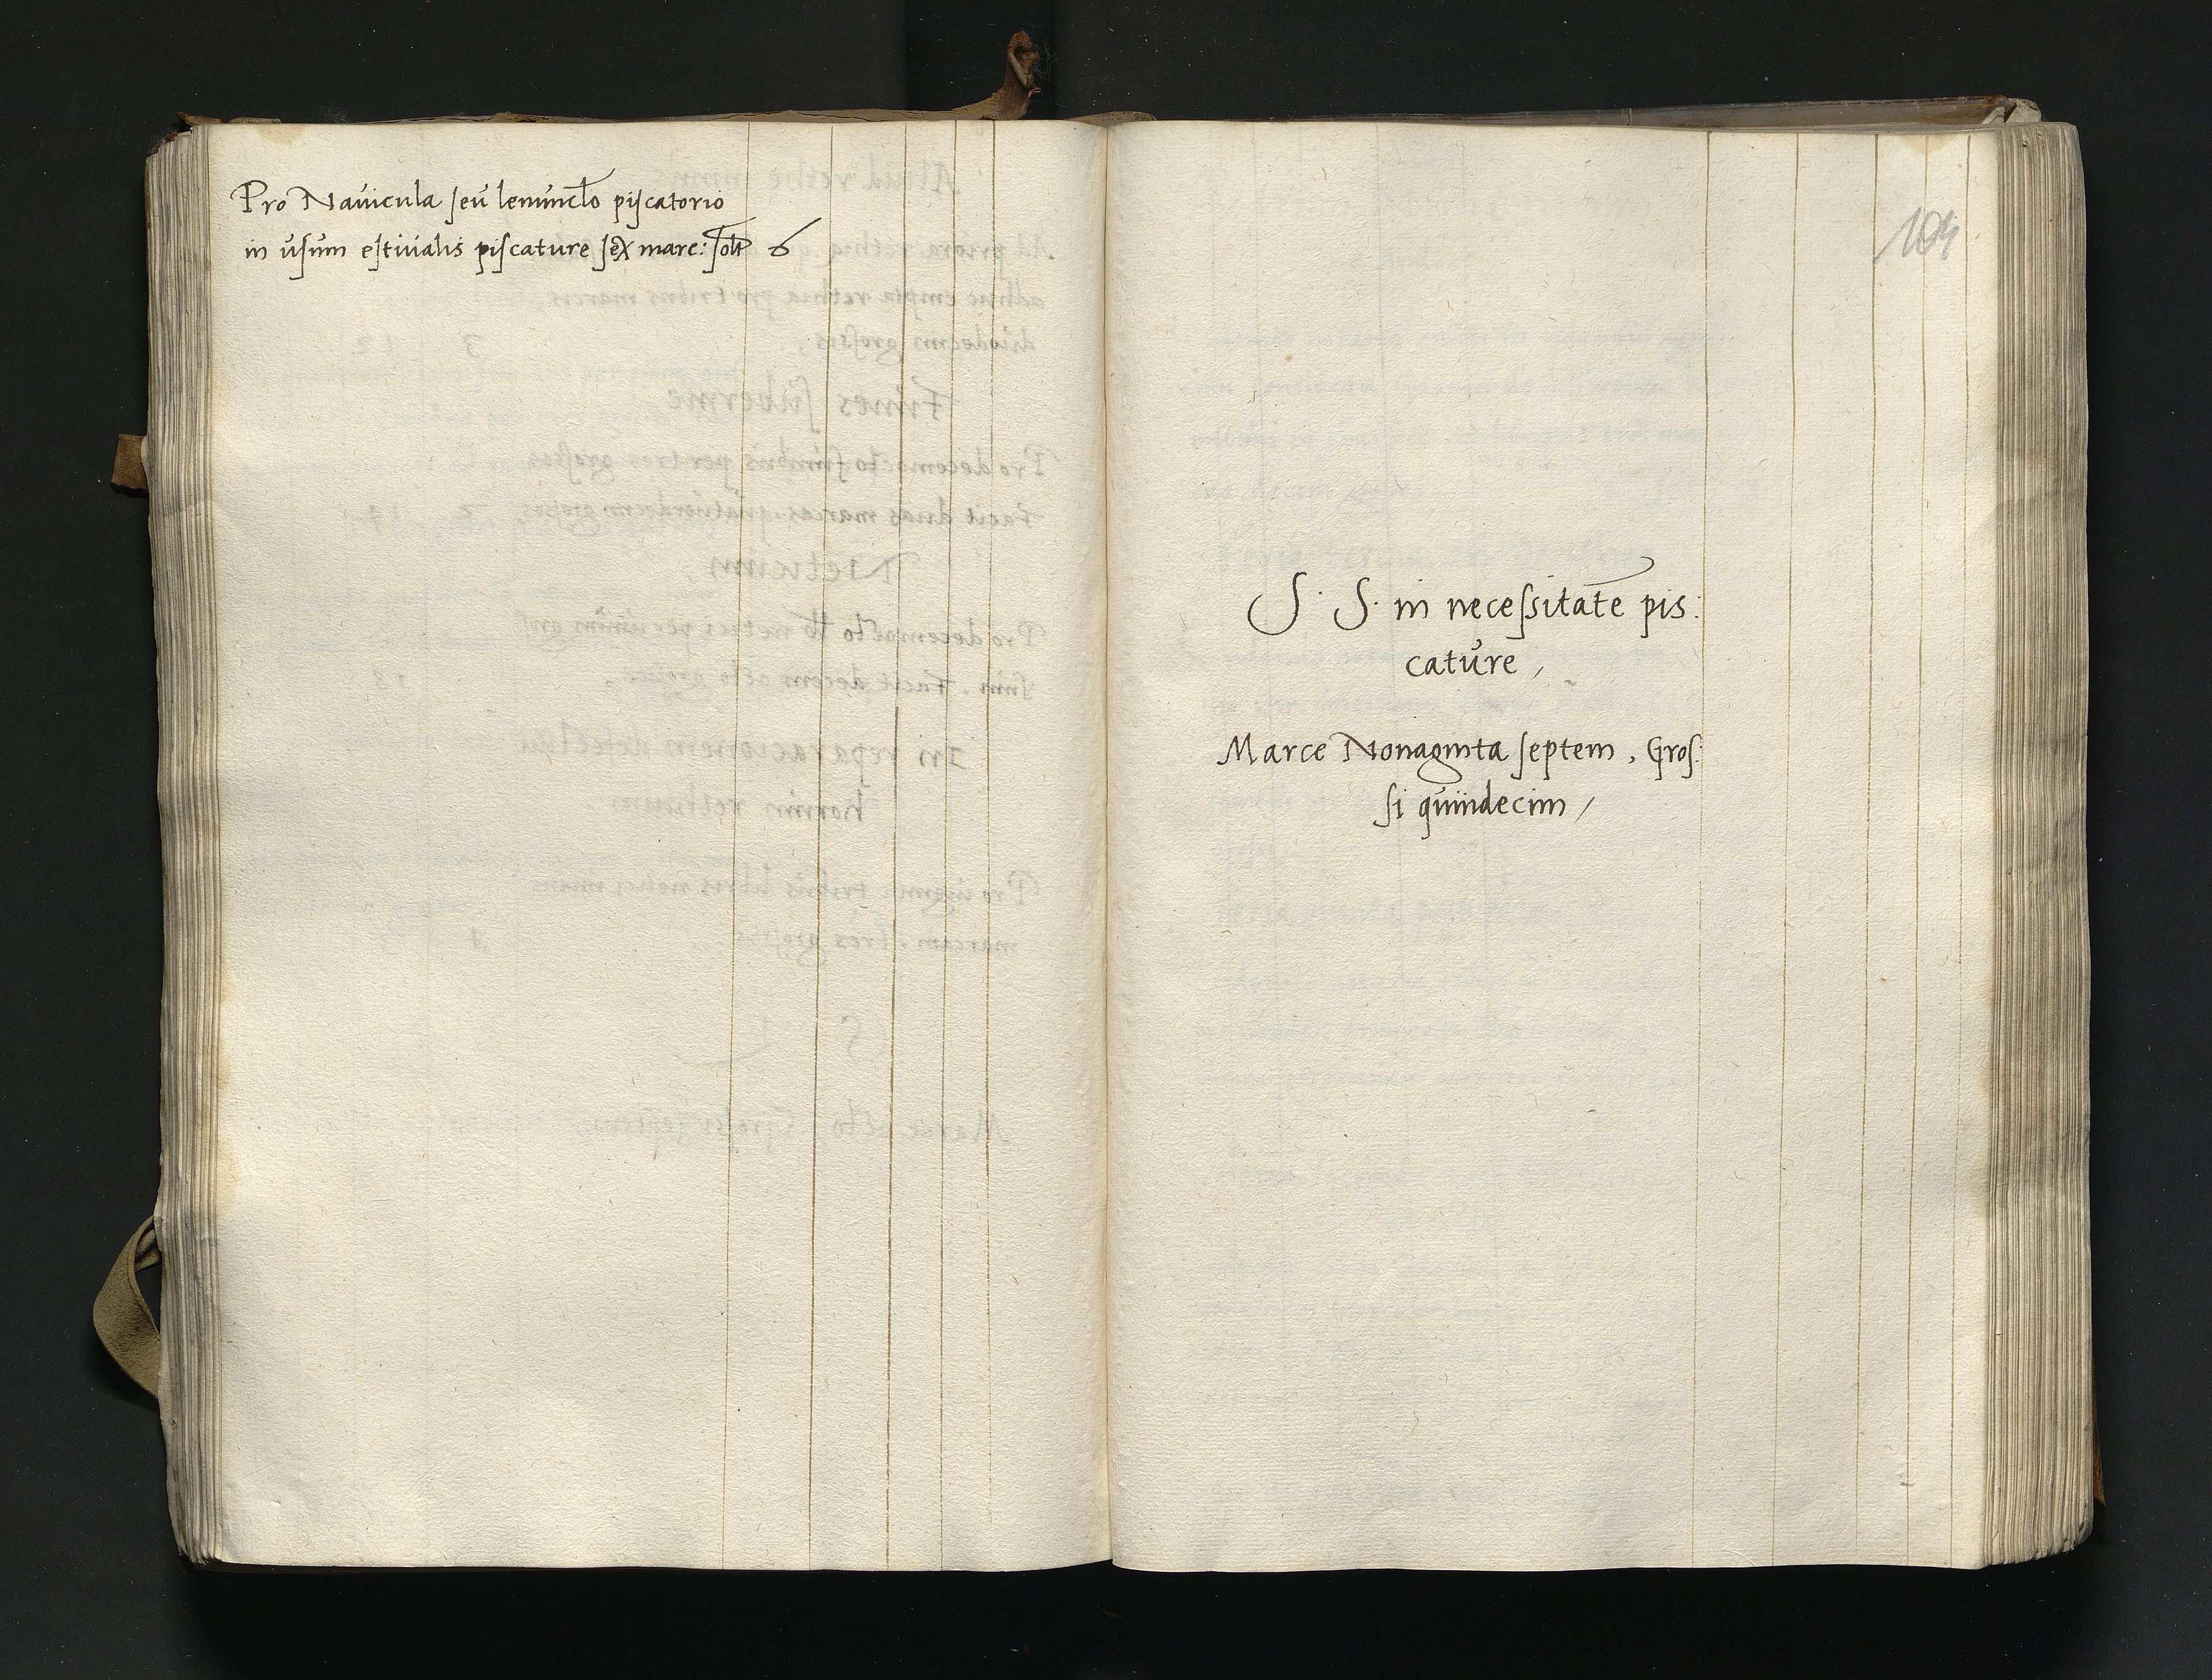 Pro Nauicula seu lenunclo piscatorio
in usum estiualis piscature sex marc: solt 6
104
S. S. in necessitate pis:
cature,
Marce Nonaginta septem, Gros:
si quindecim,